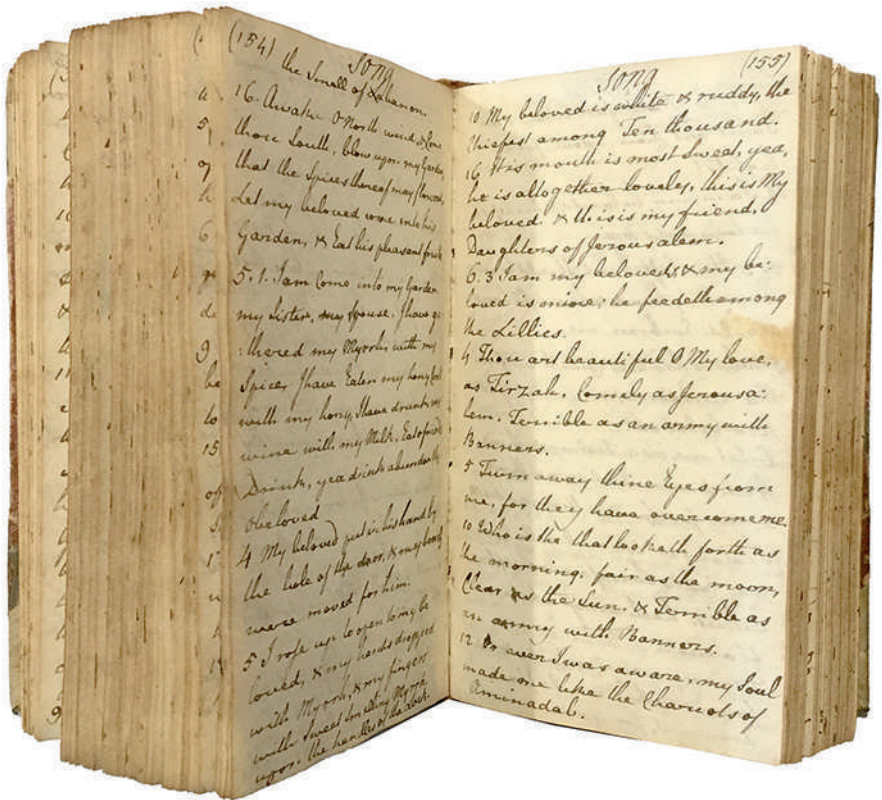 (154)
Song
the Smell of Lebanon.
16. Awake O North wind, & Come
thou South, blow upon my Garden,
that the Spices thereof may flow out,
Let my beloved come into his
Garden, & Eat his pleasant fruits
5. 1. I am Come into my Garden
my Sister, my Spouse. I have ga
:thered my Myrrh, with my
Spice, I have Eaten my hony Comb
with my hony, I have drunk my
wine with my Milk. Eat o friends
Drink, yea drink abundantly
O beloved
4 My beloved put in his hand by
the hole of the door, & my bowels
were moved for him.
5 I rose up to open to my be
loved, & my hands dropped
with Myrrh, & my fingers
with Sweet Smelling Myrrh
upon the handles of the Lock.
(155)
Song
10 My beloved is white & ruddy, the
Chiefest among Ten thousand.
16 His mouth is most Sweet, yea,
he is altogether lovely, this is My
beloved & this is my friend,
Daughters of Jerousalem.
6. 3 I am my beloveds, & my be:
loved is mine; he feedeth among
the Lillies.
4 Thou art beautiful O My love,
as Tirzah, Comely as Jerousa:
lem. Terrible as an army with
Banners.
5 Turn away thine Eyes from
me, for they have overcome me
10 Who is she that looketh forth as
the morning, fair as the moon,
Clear as the Sun. & Terrible as
an army with Banners.
12 Or ever I was aware, my Soul
made me like the Chariots of
Aminadab.